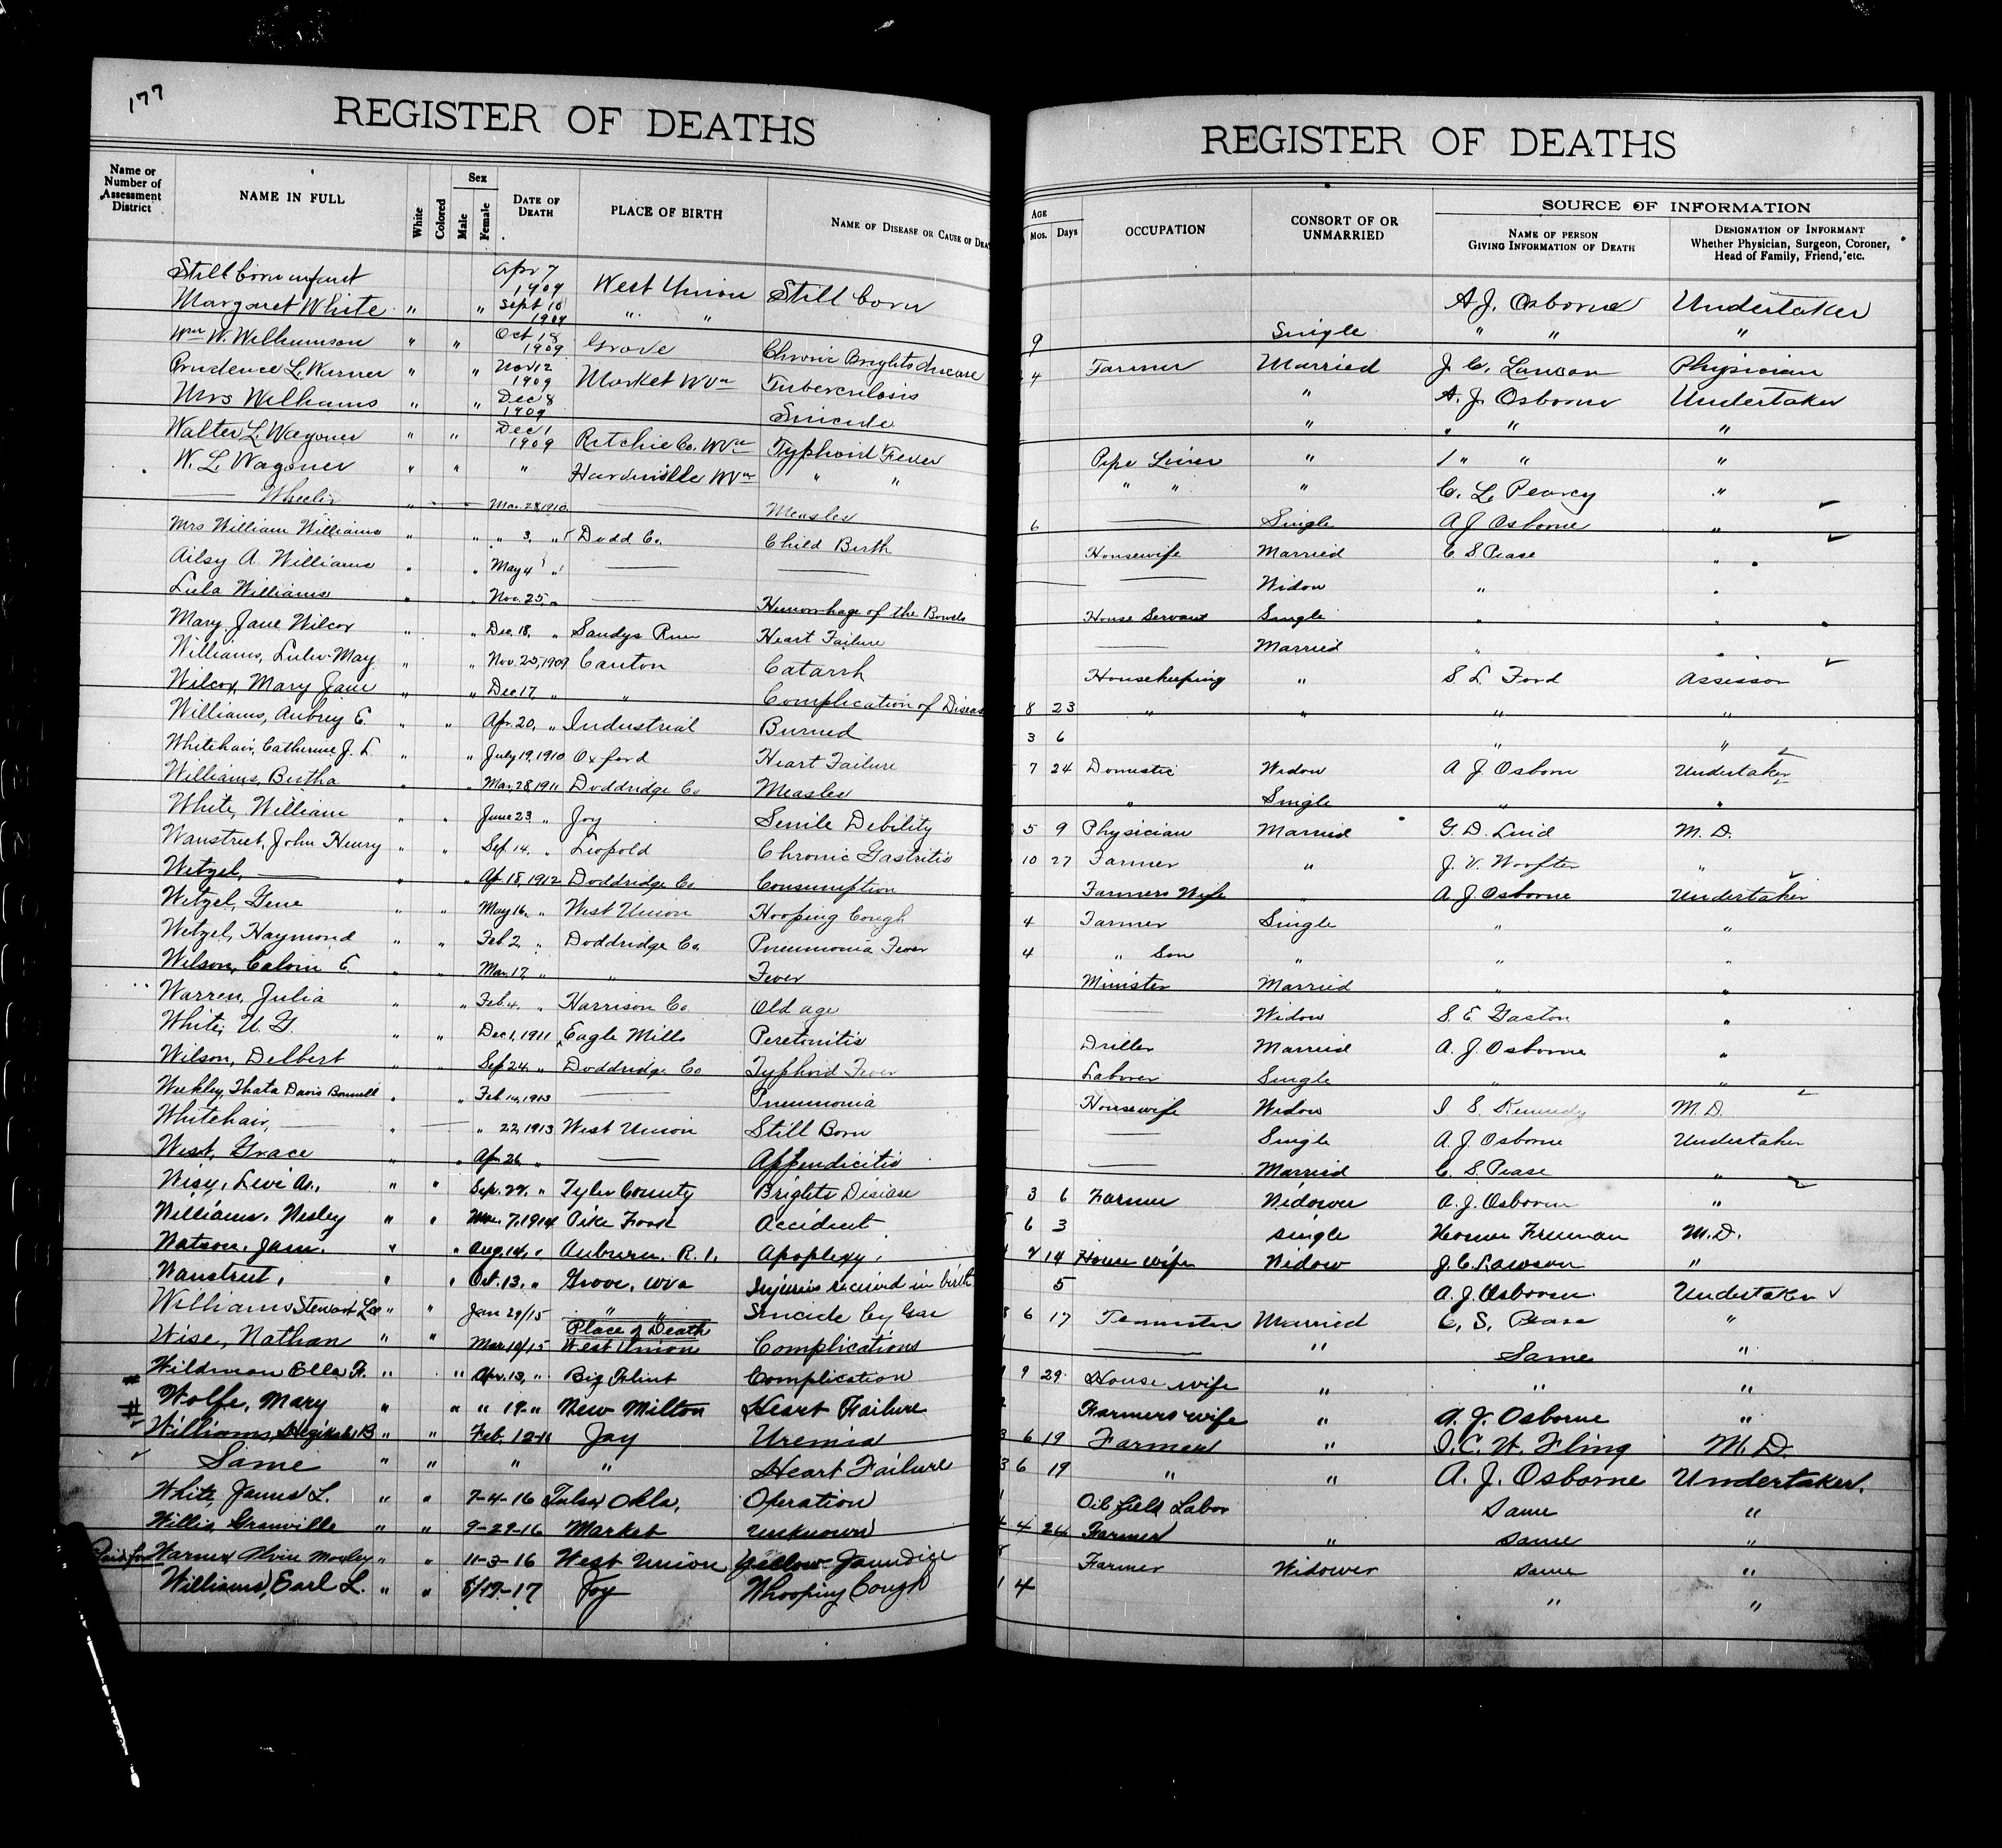 177
REGISTER OF DEATHS
Name or Number of Assessment District
NAME IN FULL
White
Colored
Sex
Male
Female
DATE OF DEATH
PLACE OF BIRTH
NAME OF DISEASE OR CAUSE OF DEA
Still born infant Apr 7 1909 West Union Still born
Margaret White " " Sept 10 1909 " "
Wm W. Williamson " " Oct 18 1909 Grove Chronic Brights disease
Prudence L. Warner " " Nov 12 1909 Market WVa Tuberculosis
Mrs Williams " " Dec 8 1909 Suicide
Walter L. Wagoner " " Dec 1 1909 Ritchie Co. WVa Typhoid Fever
W. L. Wagoner " " " Hardinville WVa " "
Wheeler " Mar. 28, 1910 Measles
Mrs William Williams " " " 3, " Dodd Co. Child Birth
Ailsy A. Williams " " May 4 "
Lula Williams " " Nov. 25, " Hemorrhage of the Bowels
Mary Jane Wilcox " " Dec. 18, " Sandys Run Heart Failure
Williams, Lulu May " " Nov. 25, 1909 Canton Catarrh
Wilcox, Mary Jane " " Dec 17, " " Complication of Diseas
Williams, Aubrey E. " " Apr. 20, " Industrial Burned
Whitehair, Catherine J. L. " " July 19, 1910 Oxford Heart Failure
Williams, Bertha " " Mar. 28, 1911 Doddridge Co Measles
White, William " " June 23 " Joy Senile Debility
Wanstreet, John Henry " " Sep. 14, " Leopold Chronic Gastritis
Wetzel, " " Ap. 18, 1912 Doddridge Co Consumption
Wetzel, Gene " " May 16, " West Union Hooping Cough
Wetzel, Haymond " " Feb 2 " Doddridge Co. Pneumonia Fever
Wilson, Calvin E. " " Mar. 17, " " Fever
Warren, Julia " " Feb 4, " Harrison Co Old age
White, U. G. " " Dec 1, 1911 Eagle Mills Peretonitis
Wilson, Delbert " " Sep 24, " Doddridge Co Typhoid Fever
Weekley, Thata Davis Bonnell " " Feb 14, 1913 Pneumonia
Whitehair, " " 22, 1913 West Union Still Born
West, Grace " " Apr 26, " Appendicitis
Wisy, Levi A., " " Sep. 27, " Tyler County Brights Disease
Williams, Wesley " " Mar. 7, 1914 Pike Fork Accident
Watson, Jane. " " Aug 14, " Auburn, R. 1, Apoplexy
Wanstreet, " " Oct. 13, " Grove, WVa Injuries received in birth
Williams Stewart Lee " " Jan 29/15 " " Suicide by Gas
Place of Death
Wise, Nathan " " Mar 10/15 West Union Complications
# Wildman Ella F. " " Apr. 13, " Big Flint Complication
# Wolfe, Mary " " " 19 - " New Milton Heart Failure
Williams, B " " Feb. 12 - " Joy Uremia
Same " " " " Heart Failure
White, James L. " " 7-4-16 Tulsa Okla, Operation
Willis, Granville " " 9-29-16 Market Unknown
Paid for Warner Alvin Moxley " " 11-3-16 West Union Yellow Jaundice
Williams, Earl L. " " 8/19-17 Joy Whooping Cough
REGISTER OF DEATHS
AGE
Mos.
Days
OCCUPATION
CONSORT OF OR UNMARRIED
SOURCE OF INFORMATION
NAME OF PERSON GIVING INFORMATION OF DEATH
DESIGNATION OF INFORMANT
Whether Physician, Surgeon, Coroner, Head of Family, Friend, etc.
A. J. Osborne Undertaker
9 Single " " "
4 Farmer Married J. C. Lawson Physician
" A. J. Osborne Undertaker
" " " "
Pipe Liner " " " "
" " " C. L. Pearcy "
6 Single A J Osborne "
Housewife Married C S Pease "
Widow " "
House Servant Single " "
Married " "
Housekeeping " S. L. Ford Assessor
8 23 " " " "
3 6 " "
7 24 Domestic Widow A J Osborn Undertaker
" Single " "
5 9 Physician Married G. D. Lind M. D.
10 27 Farmer " J. V. Woofter "
Farmers Wife " A J Osborne Undertaker
4 Farmer Single " "
4 " Son " " "
Minister Married " "
Widow S. E. Gaston "
Driller Married A. J. Osborne "
Laborer Single " "
Housewife Widow I S. Kennedy M. D.
Single A. J. Osborne Undertaker
Married C. S. Pease "
3 6 Farmer Widower A. J. Osborn "
6 3 single Homer Freeman M. D.
7 14 House wife Widow J. C. Lawson "
5 A. J. Osborn. Undertaker
6 17 Teamster Married C. S. Pease "
" Same "
9 29 House wife " " "
Farmers wife " A. J. Osborne "
6 19 Farmer " I. C. W. Fling M. D.
6 19 " " A. J. Osborne Undertaker.
Oil field Labor Same "
4 24 Farmer " Same "
Farmer Widower Same "
1 4 " "